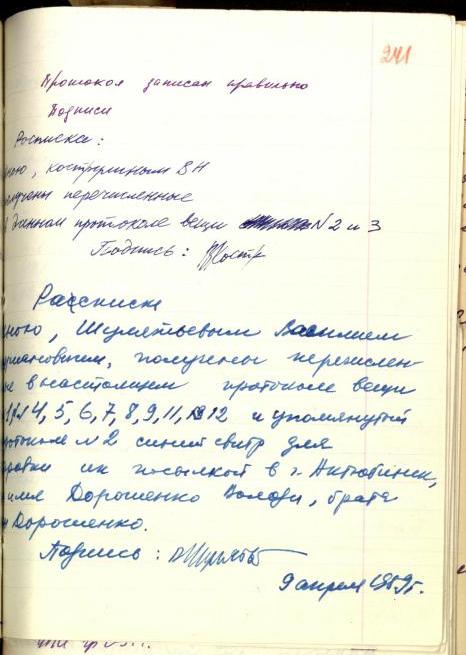 241
Протокол записан правильно
Подписи
Расписка:
мною, Костриминым В Н
получены перечисленные
в данном протоколе вещи N 2 и 3
Подпись: ВКостр
Расписка
мною, Шулятьевым Василием
получены перечислен-
ые в настоящем протоколе вещи
4, 5, 6, 7, 8, 9, 11, 12 и упомянутый
протоколе N 2 синий свитр для
ки их посылкой в г. Актюбинск,
имя Дорошенко Володи, брата
Дорошенко.
Подпись: ВШулятьев
9 апреля 1959г.